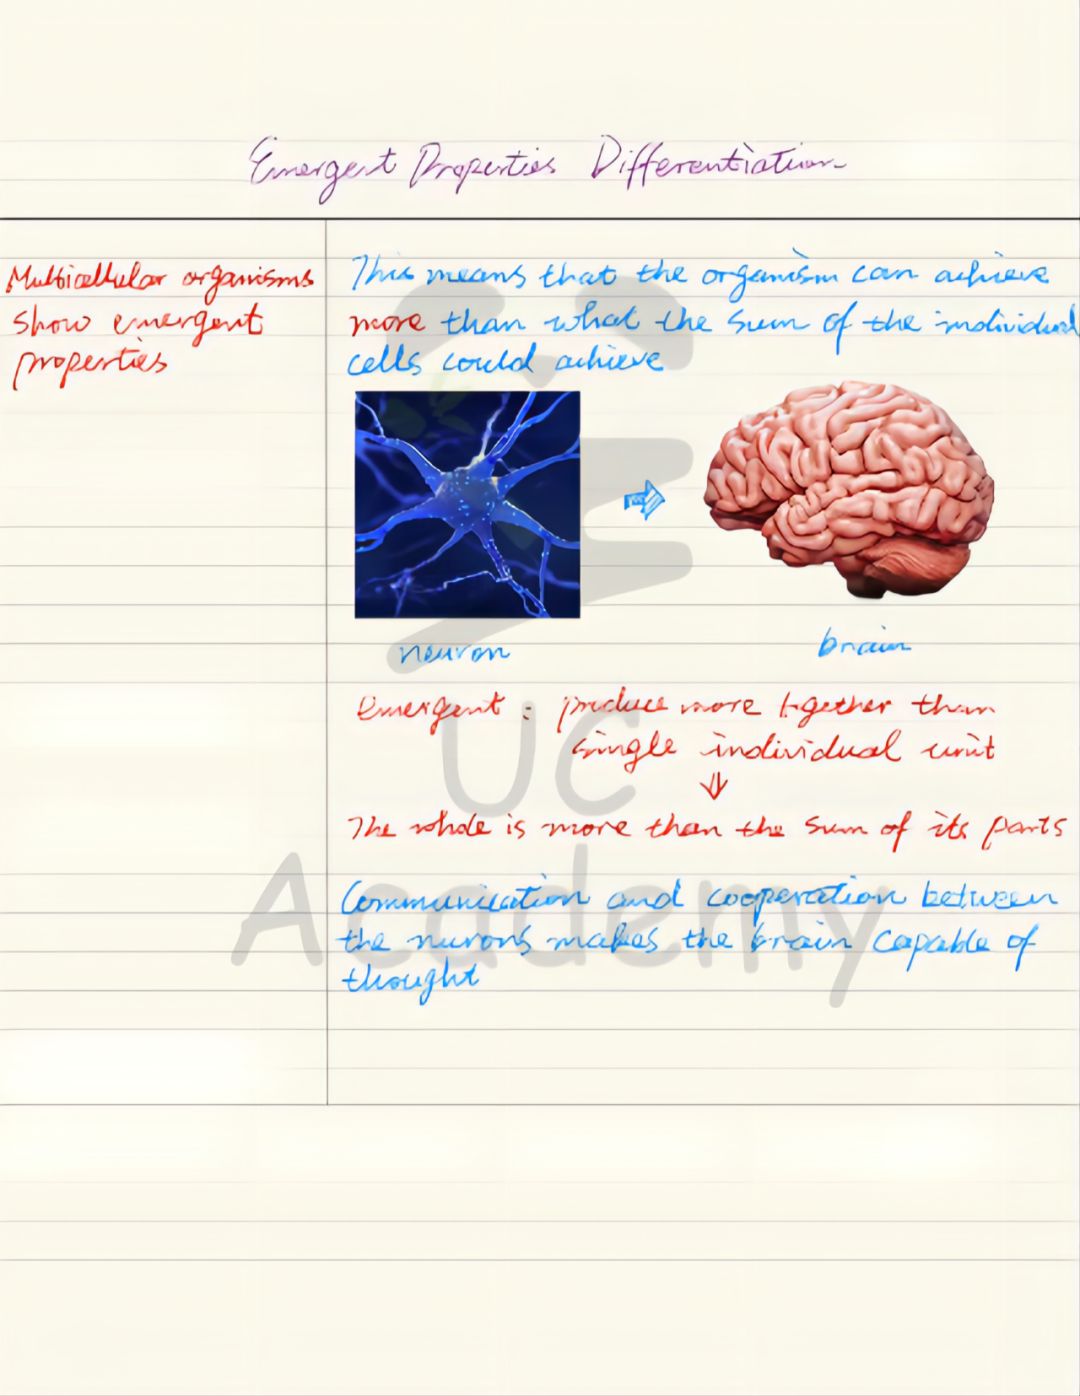 Emergent Properties Differentiation
Multicellular organisms
show emergent
properties
This means that the organism can achieve
more than what the sum of the individual
cells could achieve
neuron
brain
Emergent : produce more together than
single individual unit
The whole is more than the sum of its parts
Communication and cooperation between
the nurons makes the brain capable of
thought
UC
Academy